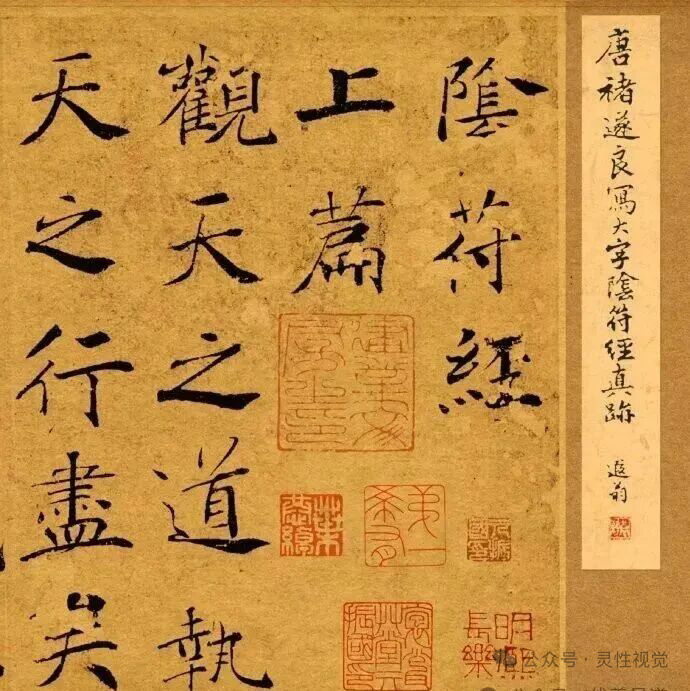 唐褚遂良寫大字陰符經真跡
遐翁
陰符經
上篇
觀天之道執
天之行盡矣
建業文房之印
公众号 · 灵性视觉